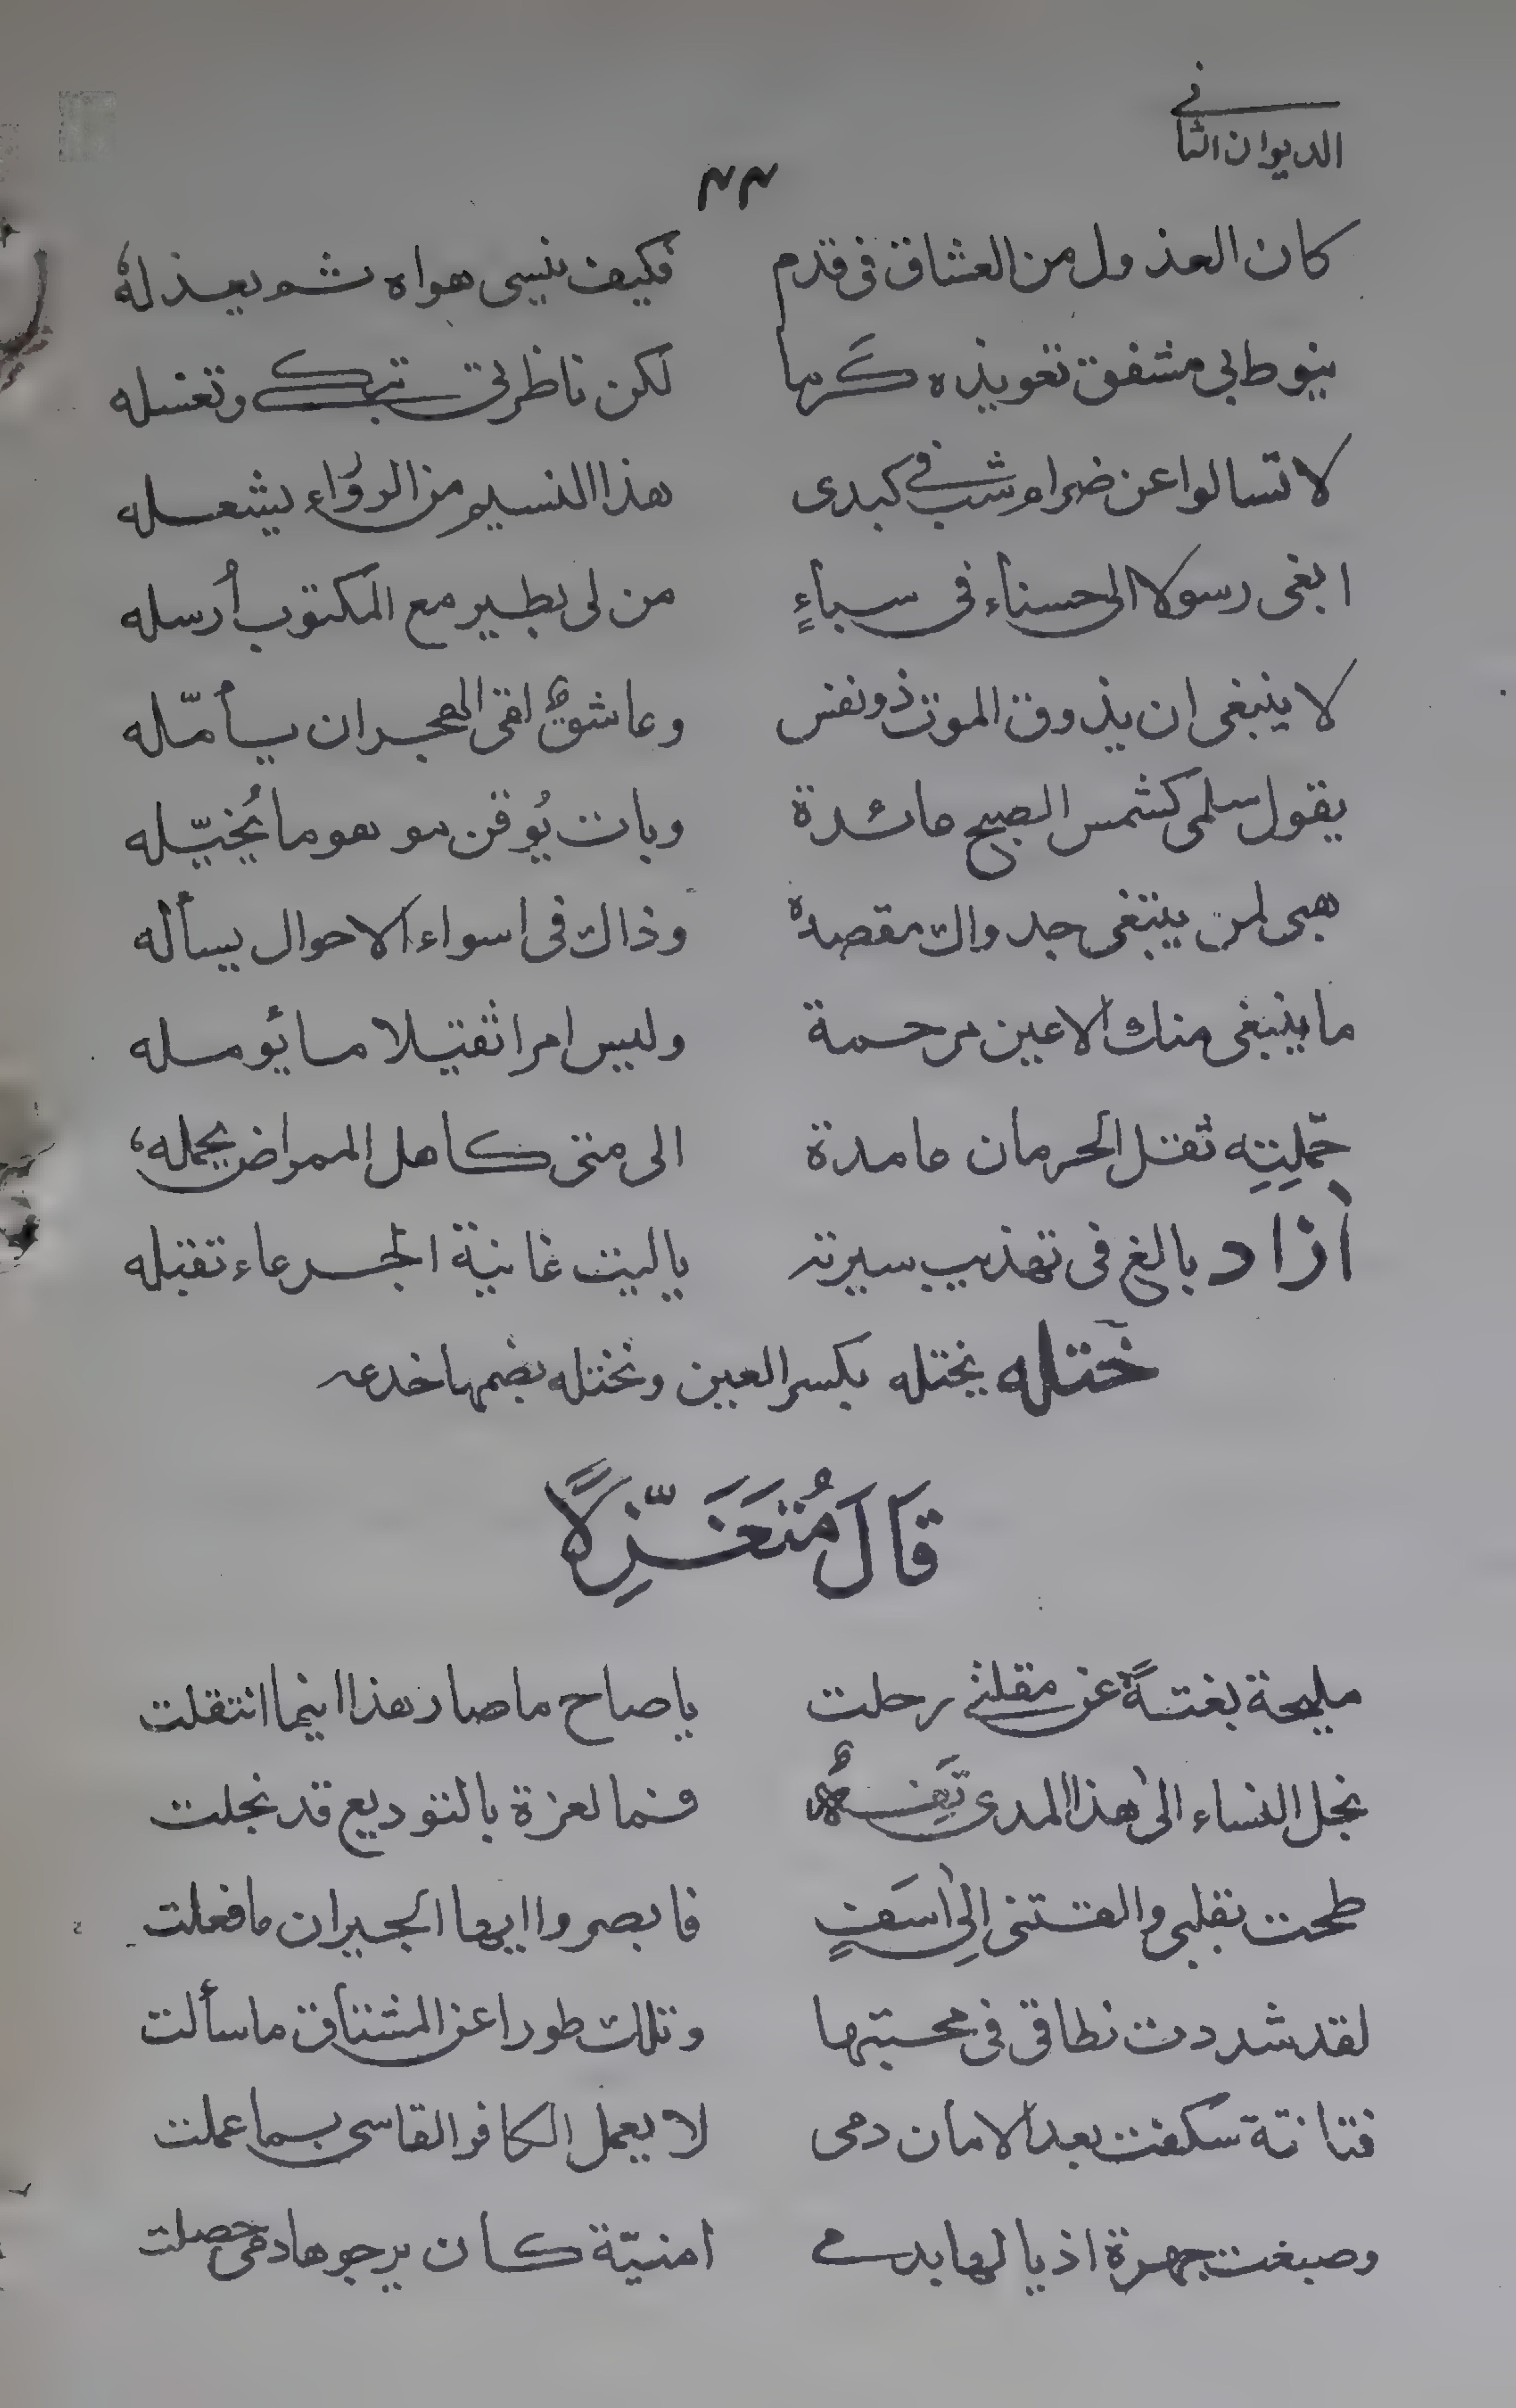 الديوان الثانى
٢٢
كان العذول من العشاق فى قدم فكيف ينسى هواه ثم يعذله
ينوط بى مشفق تعويذه كرما لكن ناظرتى تبكى وتغسله
لا تسالوا عن ضرام شب فى كبدى هذا النسيم من الروّاء يشعله
ابغى رسولا الى حسناء فى سباءٍ من لى بطير مع المكتوب أرسله
لا ينبغى ان يذوق الموت ذو نفس وعاشق الهجران يأمّله
يقول سلمى كشمس الصبح مائدة وبات يُوقن هو ما يُخيّله
هبى لمن يبتغى جدواك مقصده وذاك فى اسواء الاحوال يسأله
ما ينبغى منك الا عين مرحمة وليس امرا ثقيلا ما يؤمله
حمّلتِهِ ثقل الحرمان الى متى كاهل الممراض يحمله
اٰزاد بالغ فى تهذيب سيرته ياليت غانية الجرعاء تقبله
ختله يختله بكسر العين ونختله بضمها خدعه
قَالَ مُتَغَزِّلًا
مليحة بغتةً عن مقلتى رحلت يا صاح ما صار هذا اينما انتقلت
بخل النساء الى هذا المدى فما لعزة بالتوديع قد بخلت
طمحت بقلبى والقتنى الى اسفٍ فابصروا ايها الجيران ما فعلت
لقد شددت نطاقى فى محبتها وتلك طورا عن المشتاق ما سألت
فتانة سكفت بعد الامان دمى لا يعمل الكافر القاسى بما عملت
وصبغت جهرة اذيالها بدمى امنيّة كان يرجوها دمى حصلت